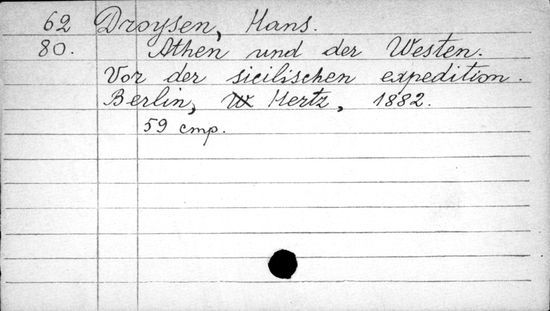 62 Droysen, Hans.
80. Athen und der Westen.
Vor der sicilischen expedition.
Berlin, W Hertz, 1882.
59 стр.